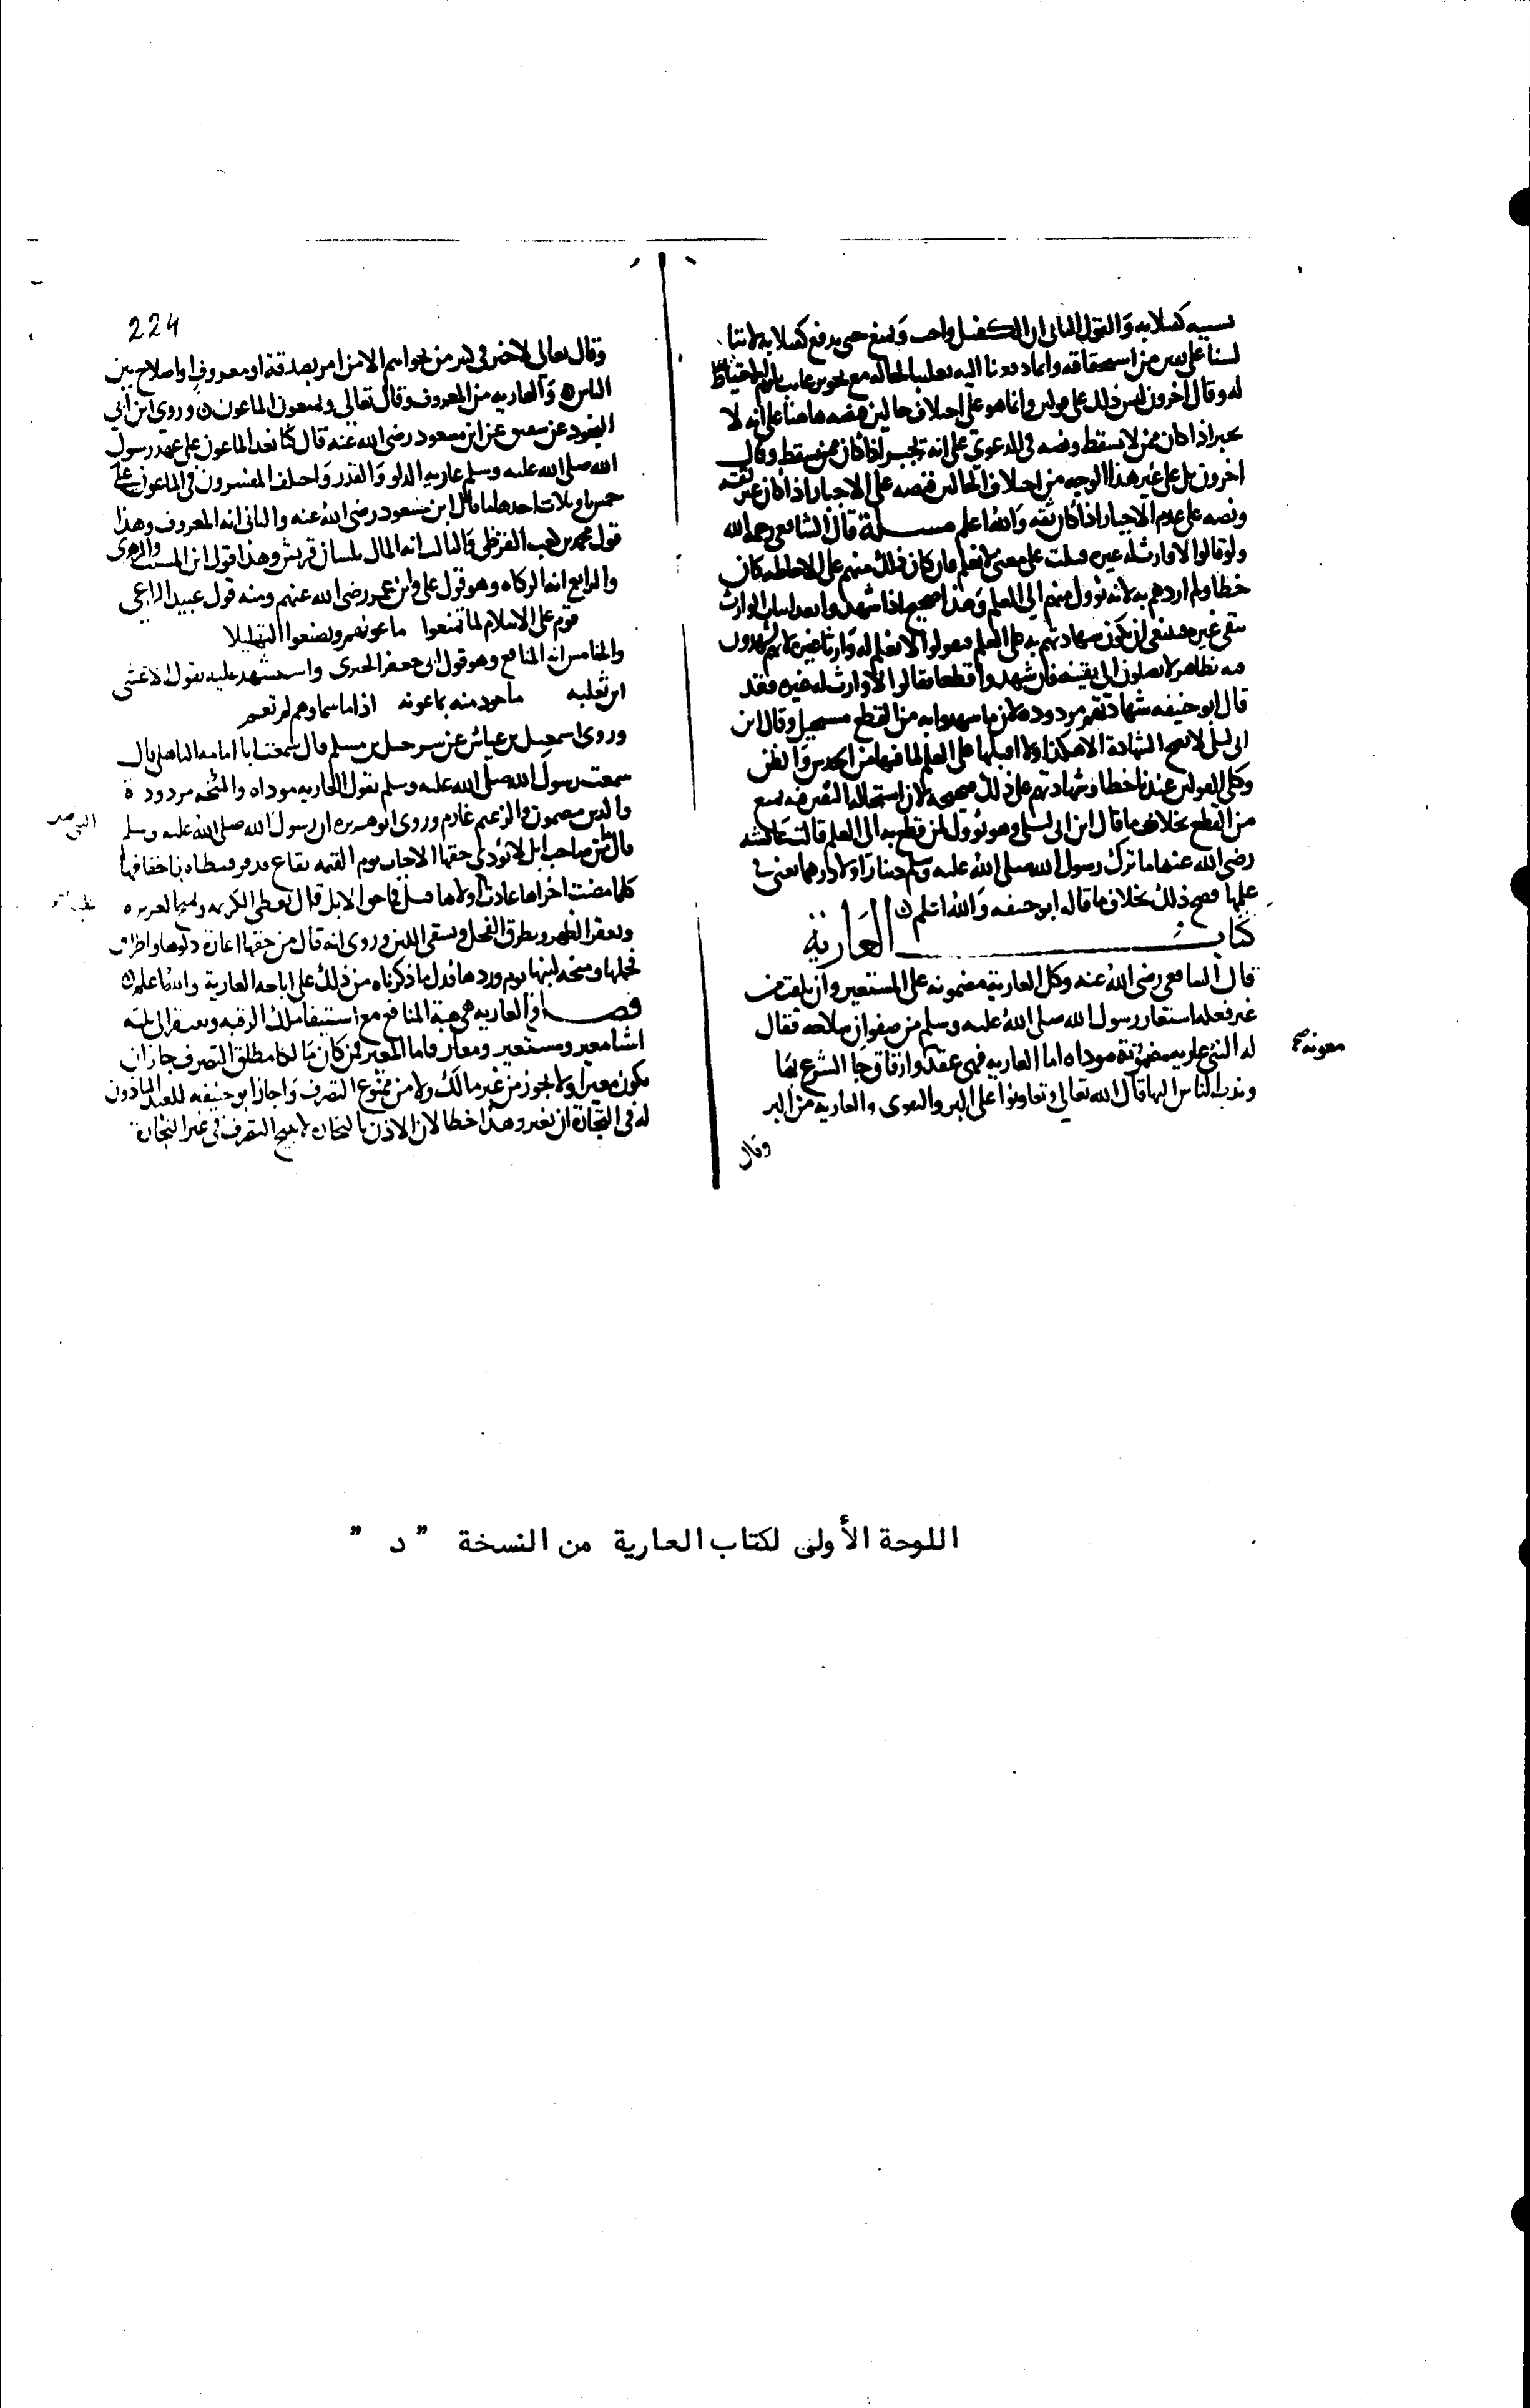 لسنا على يقين من استحقاقه وانما دفعنا اليه تغليبا لحاله مع تجويز
له وقال اخرون ليس ذلك على قولين وانما هو على اختلاف حالين فنصه هاهنا على انه لا
يجبر اذا كان ممن لا يسقط ونصه في الدعوى على انه يجبر اذا كان ممن يسقط وقال
اخرون بل على غير هذا الوجه من اختلاف الحالين فنصه على الاجبار اذا كان غير ثقة
ونصه على عدم الاجبار اذا كان ثقه والله اعلم مسلة قال الشافعي رحمه الله
ولو قالوا لا وارث له غيره قبلت على معنى لا نعلم فان كان ذلك منهم على الاحاطه كان
خطا ولم اردهم به لانه يؤول منهم الى العلم وهذا صحيح اذا شهدوا بعد اثبات الوارث
بنفي غيره فينبغي ان يكون شهادتهم به على العلم فيقولوا لا نعلم له وارثا غيره لانهم يشهدون
فيه بظاهر لا يصلون الى يقينه فان شهدوا قطعا فقالوا لا وارث له غيره فقد
قال ابو حنيفه شهادتهم مردوده لان ما شهدوا به من القطع مستحيل وقال ابن
ابي ليلى لا تصح الشهادة الا هكذا ولا اقبلها على العلم لما فيها من الحدس والظن
وكلى القولين عندنا خطا وشهادتهم على ذلك صحيحه لان استحاله اليقين فيه يمنع
من القطع بخلاف ما قال ابن ابي ليلى وهو يؤول لمن قطع به الى العلم قالت عائشه
رضي الله عنها ما ترك رسول الله صلى الله عليه وسلم دينارا ولا درهما يعني في
علمها فصح ذلك بخلاف ما قاله ابو حنيفه والله اعلم
كتاب العارية
قال الشافعي رضي الله عنه وكل العارية مضمونه على المستعير وان تلفت من
غير فعله استعار رسول الله صلى الله عليه وسلم من صفوان سلاحه فقال
له النبي عاريه مضمونة موداه اما العاريه فهي عقد وارفاق جا الشرع بها
معونه صح
وندب الناس اليها قال الله تعالى وتعاونوا على البر والتقوى والعاريه من البر
وقال
224
وقال تعالى لا خير في كثير من نجواهم الا من امر بصدقة او معروف او اصلاح بين
الناس والعاريه من المعروف وقال تعالى ويمنعون الماعون وروى ابن ابي
النجود عن شقيق عن ابن مسعود رضي الله عنه قال كنا نعد الماعون على عهد رسول
الله صلى الله عليه وسلم عاريه الدلو والقدر واختلف المفسرون في الماعون على
خمس تاويلات احدها ما قال ابن مسعود رضي الله عنه والثاني انه المعروف وهذا
قول محمد بن كعب القرظي والثالث انه المال بلسان قريش وهذا قول ابن المسيب والزهري
والرابع انه الزكاه وهو قول علي وابن عمر رضي الله عنهم ومنه قول عبيد الراعي
قوم على الاسلام لما تمنعوا ماعونهم ويضيعوا التهليلا
والخامس انه المنافع وهو قول ابي جعفر الحميري واستشهد عليه بقول الاعشى
ابن ثعلبه ماجود منه بماعونه اذا ما سماوهم لم تغيم
وروى اسمعيل بن عياش عن شرحبيل بن مسلم قال سمعت ابا امامه الباهلي قال
سمعت رسول الله صلى الله عليه وسلم يقول العاريه موداه والمنحه مردودة
والدين مقضي والزعيم غارم وروى ابو هريره ان رسول الله صلى الله عليه وسلم
قال من صاحب ابل لا يؤدي حقها الا جاءت يوم القيمه بقاع قرقر فتطاه باخفافها
كلما مضت اخراها عادت اولاها قيل فما حق الابل قال تعطي الكريمه وتمنح الغزيره
وتفقر الظهر وتطرق الفحل وتسقي اللبن وروى انه قال من حقها اعارة دلوها واطراق
فحلها ومنحه لبنها يوم وردها فدل ما ذكرناه من ذلك على اباحه العارية والله اعلم
فصل فاذا العاريه هي هبة المنافع مع استبقا ملك الرقبه ويفتقر الى ثلثه
اشيا معير ومستعير ومعار فاما المعير فمن كان مالكا مطلق التصرف جاز ان
يكون معيرا ولا يجوز من غير مالك ولا من ممنوع التصرف واجاز ابو حنيفه للعبد الماذون
له في التجارة ان يعير وهذا خطا لان الاذن بالتجاره لا يبيح التصرف في غير التجارة
اللوحة الأولى لكتاب العارية من النسخة " د "